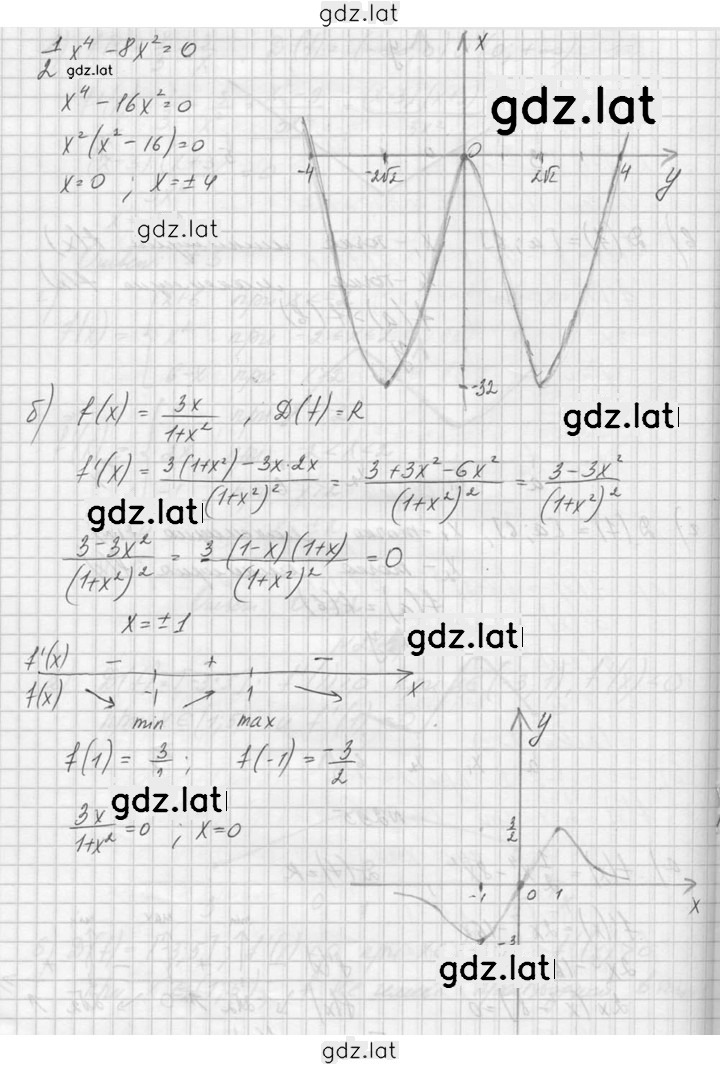 gdz.lat
1/2 x⁴ - 8x² = 0
gdz.lat
x⁴ - 16x² = 0
x²(x² - 16) = 0
x = 0 ; x = ±4
gdz.lat
x
gdz.lat
-4 -2√2 0 2√2 4
y
-32
gdz.lat
б) f(x) = 3x/(1+x²) ; D(f) = R
f'(x) = (3(1+x²) - 3x·2x)/(1+x²)² = (3+3x²-6x²)/(1+x²)² = (3-3x²)/(1+x²)²
gdz.lat
(3-3x²)/(1+x²)² = 3(1-x)(1+x)/(1+x²)² = 0
x = ±1
gdz.lat
f'(x) - + -
f(x) -1 1 x
min max
f(1) = 3/ ; f(-1) = -3/2
gdz.lat
3x/(1+x²) = 0 ; x = 0
y
3/2
-1 0 1 x
-3
gdz.lat
gdz.lat